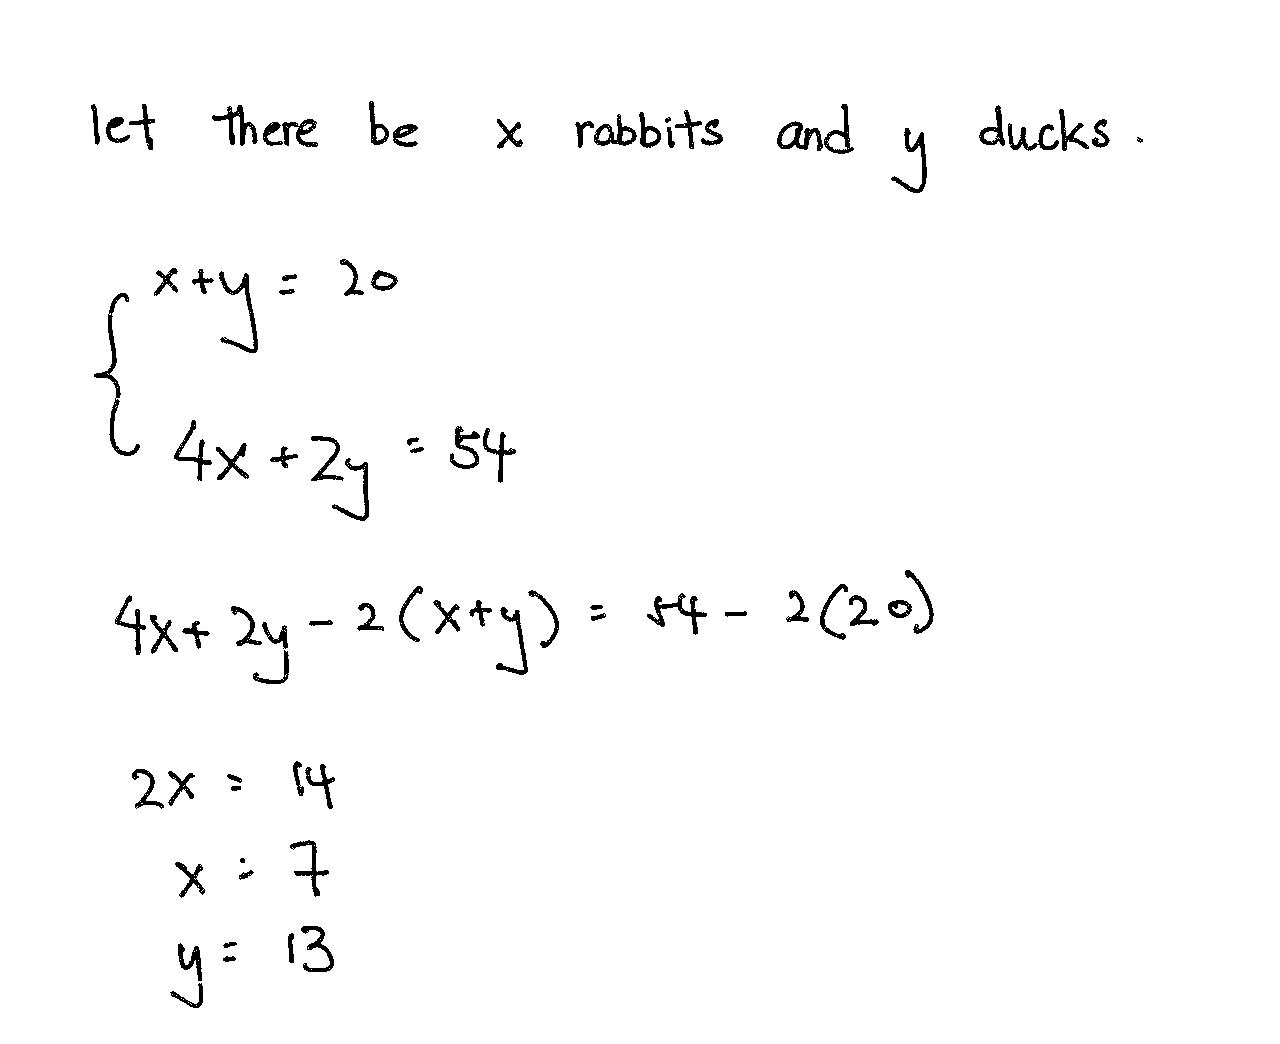 let there be x rabbits and y ducks.
x+y = 20
4x+2y = 54
4x+2y-2(x+y) = 54-2(20)
2x = 14
x = 7
y = 13